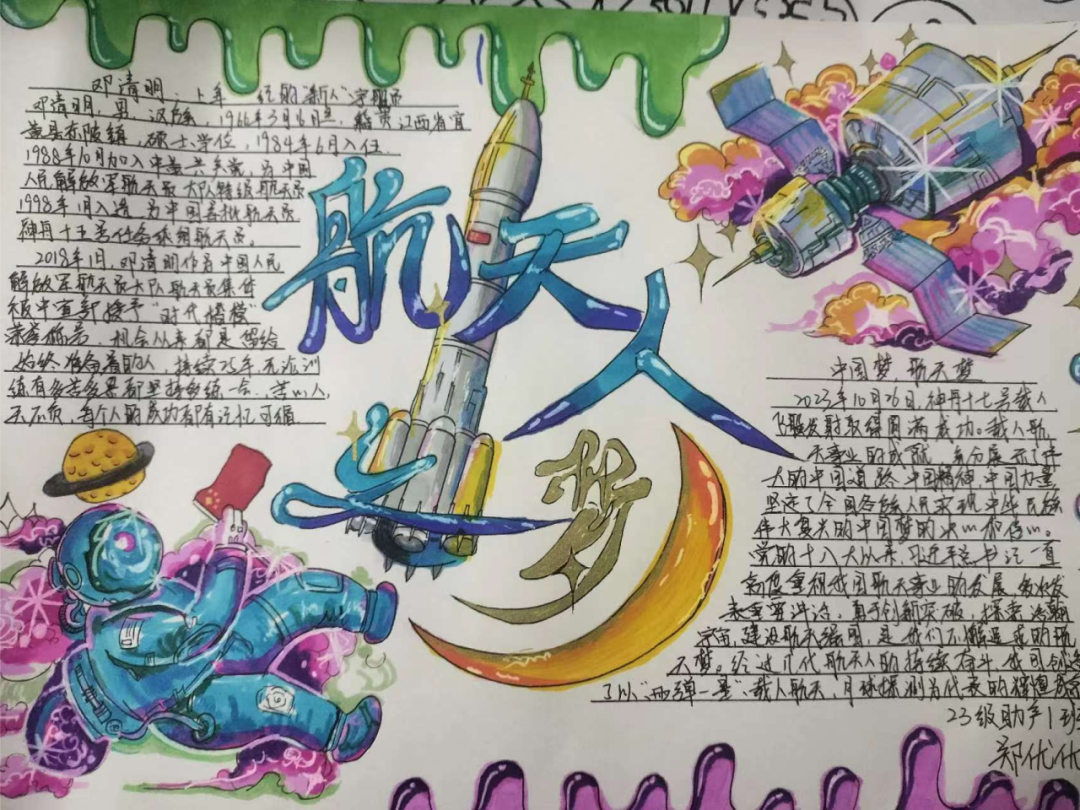 航天人之梦
邓清明
邓清明，男，汉族，1966年3月16日生，籍贯江西省宜
黄县东陂镇，硕士学位，1984年6月入伍
1988年10月加入中共，为中国
人民解放军航天员大队特级航天员
1998年1月入选为中国首批航天员
神舟十五号任务乘组航天员。
2018年1月，邓清明作为中国人民
解放军航天员大队航天员集体
被中宣部授予"时代楷模
荣誉称号，机会从来都是留给
始终准备着的人，持续25年无
练有多苦多累都坚持多练一会，苦心人
天不负，每个人的成功都有记忆可循
中国梦 航天梦
2023年10月26日，神舟十七号载人
飞船发射取得圆满成功。载人航
天事业的成就，充分展示了伟
大的中国道路 中国精神 中国力量
坚定了全国各族人民实现中华民族
伟大复兴的中国梦的决心和信心。
党的十八大以来，习近平总书记一直
高度重视我国航天事业的发展，多次发
表重要讲话，勇于创新突破，探索浩瀚
宇宙，建设航天强国，是我们不懈追求的航
天梦。经过几代航天人的持续奋斗，我国创造
了以"两弹一星"载人航天，月球探测为代表的辉煌成就
23级助产1班
郑优优